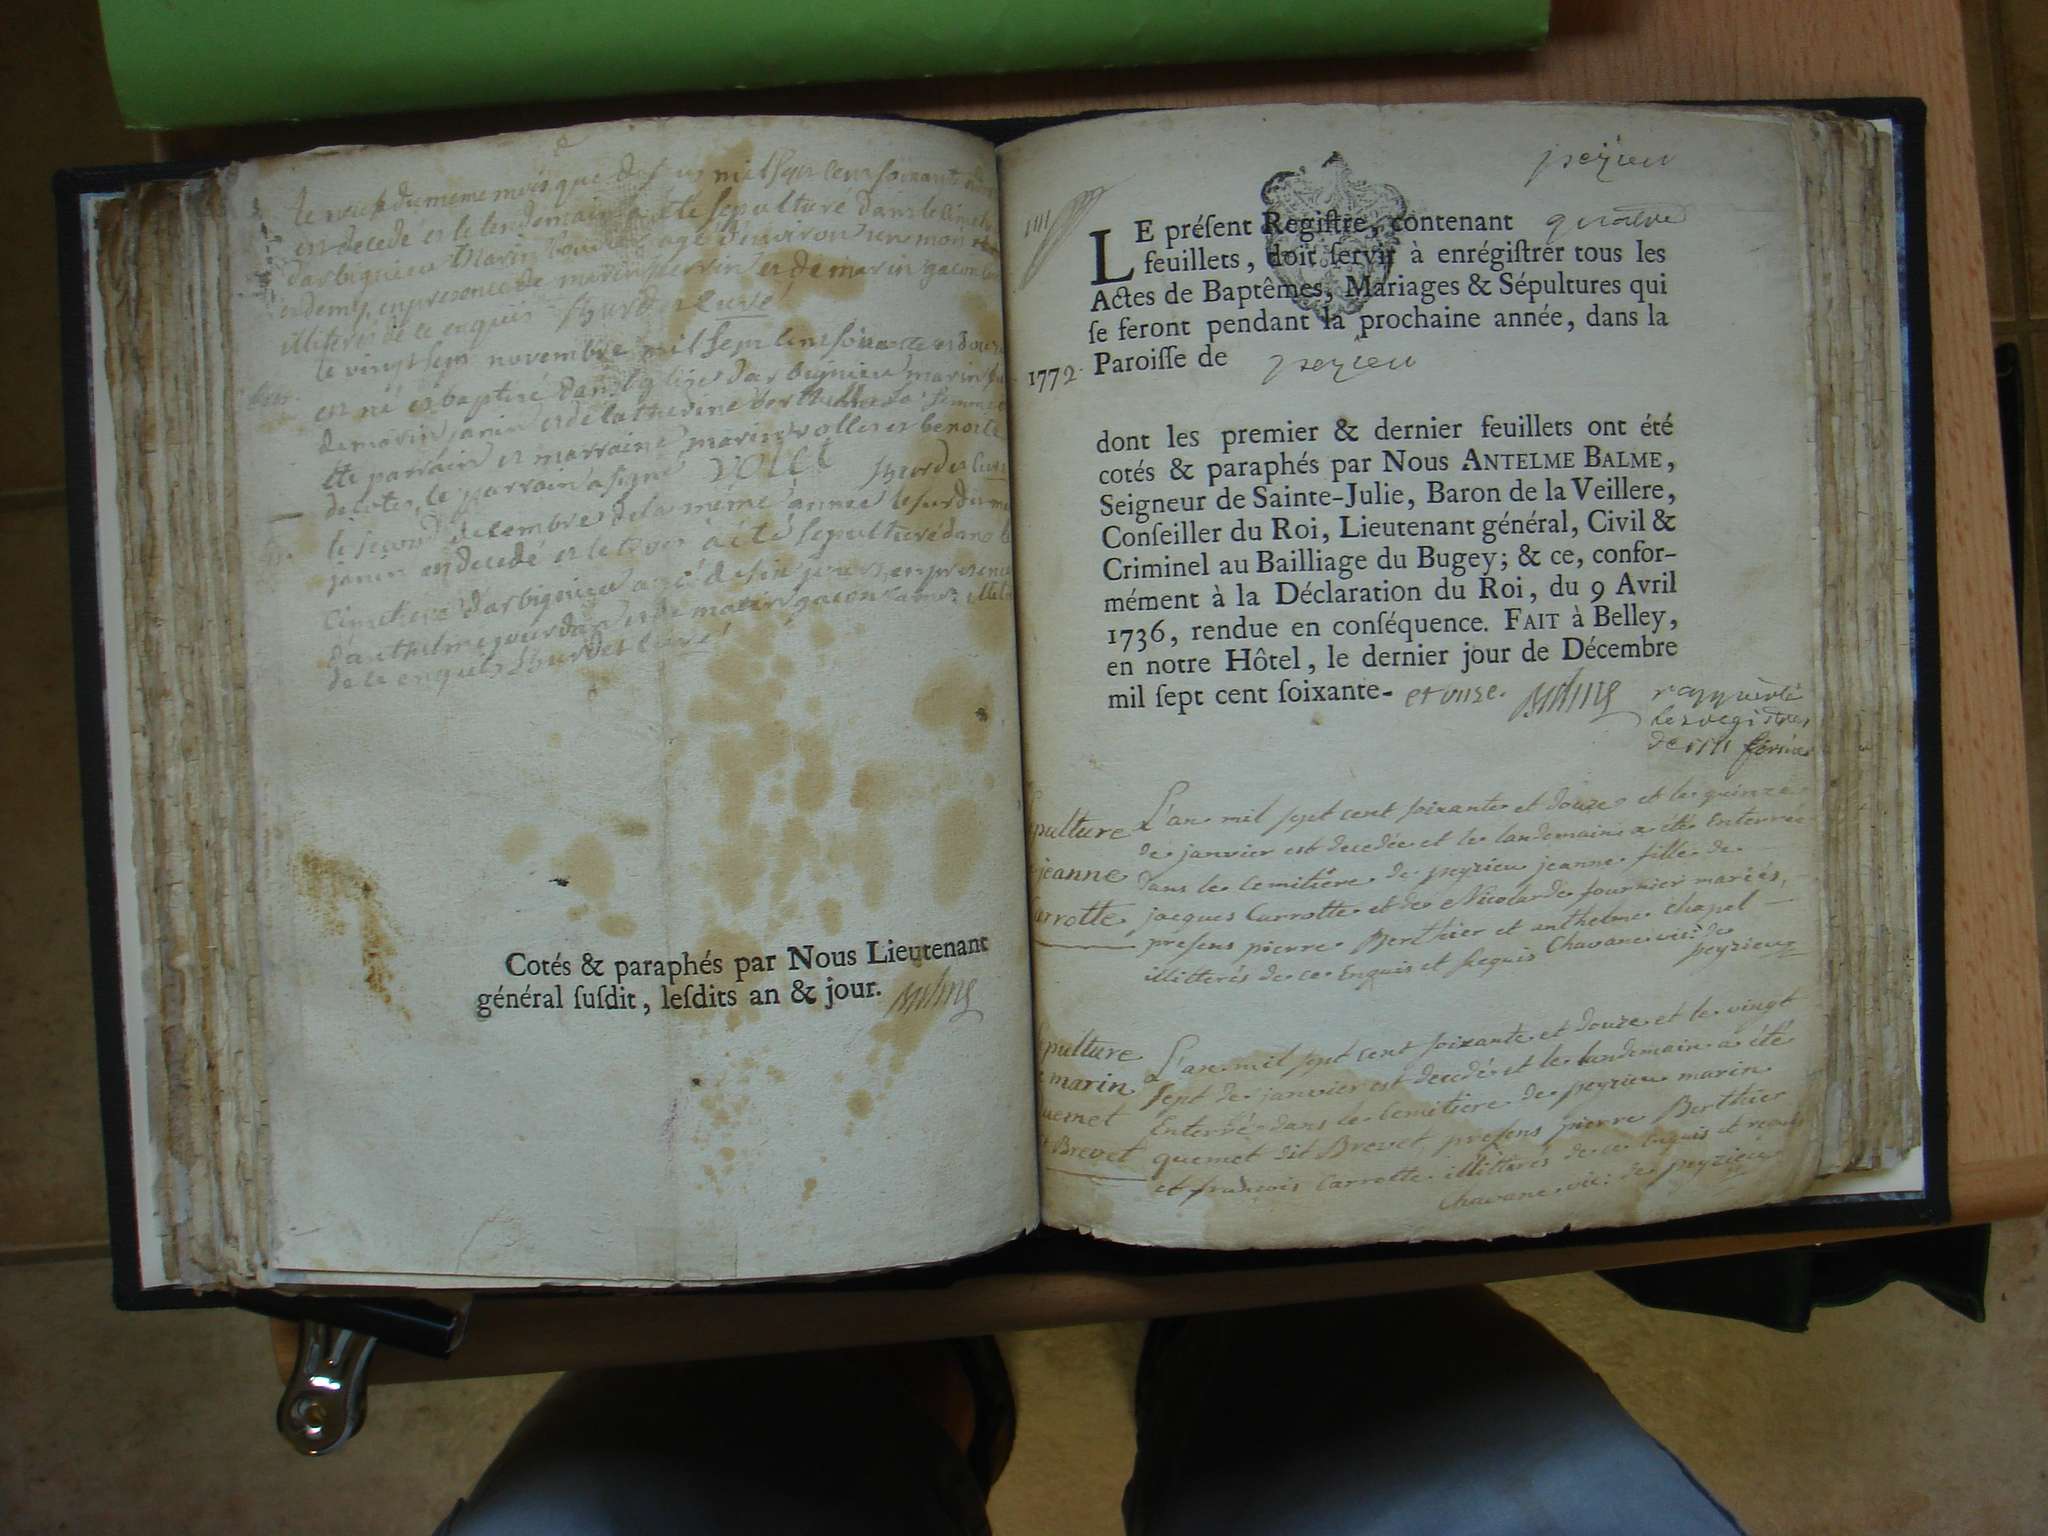 le neuf du meme mois que dessus mil sept cens soixante
est decedé et le lendemain a été sepulturé dans le
darbignieu Marin agé d'environ un mois
et demy, en presence de marin perrin et de marin gacon
illiterés de ce enquis curé
le vingt sept novembre mil sept cens soixante et douze
est né et baptisé dans l'eglise d'arbignieu marin
de marin janin et de catherine berthelle sa femme
été parrain et marraine marin vollet et benoite
le parrain a signé VOLLET curé
le second decembre de la meme année
janin est decedé et le a été sepulturé dans le
cimetiere d'arbignieu agé de six jours, en presence
d'anthelme jourdan et de marin gacon
de ce enquis curé
Cotés & paraphés par Nous Lieutenant
général suſdit, leſdits an & jour.
peyzieu
LE préſent Regiſtre, contenant quatre
feuillets, doit ſervir à enrégiſtrer tous les
Actes de Baptêmes, Mariages & Sépultures qui
ſe feront pendant la prochaine année, dans la
1772. Paroiſſe de peyzieu
dont les premier & dernier feuillets ont été
cotés & paraphés par Nous ANTELME BALME,
Seigneur de Sainte-Julie, Baron de la Veillere,
Conſeiller du Roi, Lieutenant général, Civil &
Criminel au Bailliage du Bugey; & ce, confor-
mément à la Déclaration du Roi, du 9 Avril
1736, rendue en conſéquence. FAIT à Belley,
en notre Hôtel, le dernier jour de Décembre
mil ſept cent ſoixante- et onze. Balme
les registres
pulture L'an mil sept cent soixante et douze et le quinze
de janvier est decedée et le landemain a été Enterrée
jeanne dans le cemitière de peyzieu jeanne fille de
Carrotte jacques Carrotte et de Nicolarde fournier mariés,
presens pierre Berthier et anthelme chapel
illitterés de ce Enquis et Requis Chavane vic: de
peyzieu
pulture L'an mil sept cent soixante et douze et le vingt
marin sept de janvier est decedé et le landemain a été
quemet Enterré dans le Cemitière de peyzieu marin
Brevet quemet dit Brevet, presens pierre Berthier
et françois Carrotte illitterés de ce Enquis et requis
Chavane vic: de peyzieu